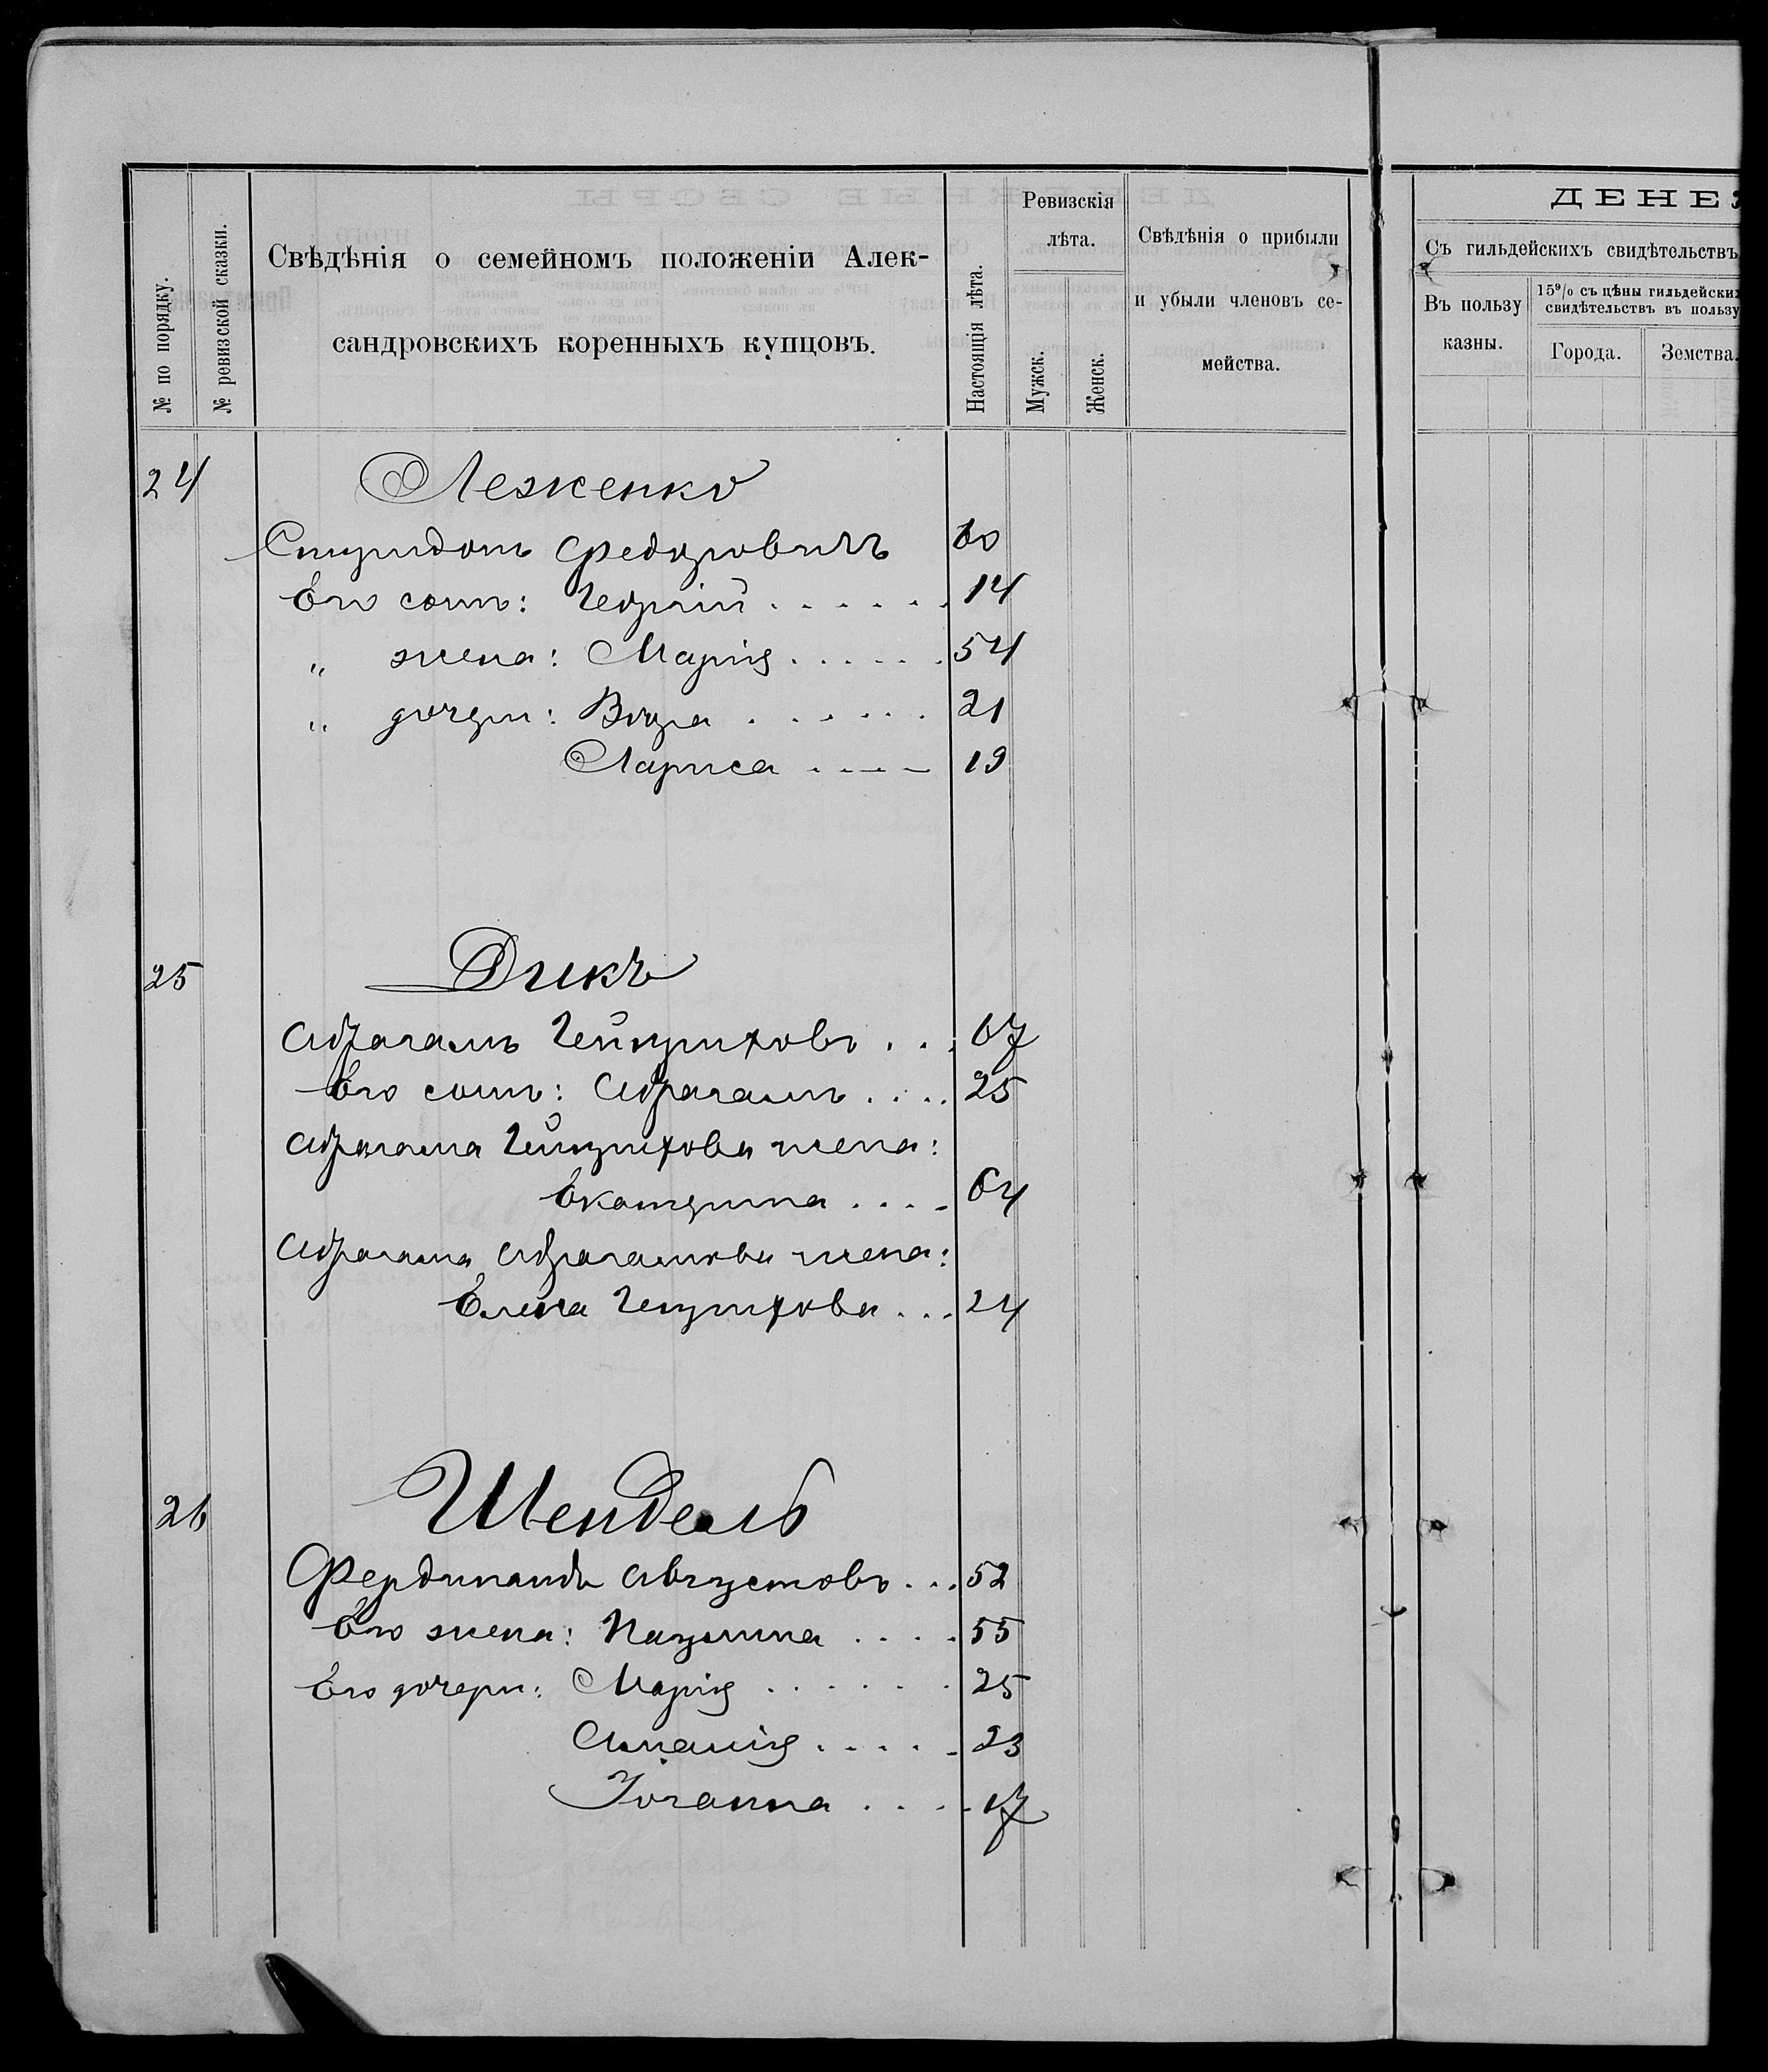 № по порядку.
№ ревизской сказки.
Свѣдѣнія о семейномъ положеніи Алек-
сандровскихъ коренныхъ купцовъ.
Настоящія лѣта.
Ревизскія
лѣта.
Мужск.
Женск.
Свѣдѣнія о прибыли
и убыли членовъ се-
мейства.
ДЕНЕЖ
Съ гильдейскихъ свидѣтельствъ
Въ пользу
казны.
15% съ цѣны гильдейских
свидѣтельствъ въ пользу
Города.
Земства.
24 Леженко
Спиридонъ Федоровичъ 60
Его сынъ: Георгій . . . . . . 14
" жена: Марія . . . . . . 54
" дочери: Вѣра . . . . . . 21
Лариса . . . . 19
25 Дикъ
Абрагамъ Гейнриховъ . . . 67
Его сынъ: Абрагамъ . . . . 25
Абрагама Гейнрихова жена:
Екатерина . . . . 64
Абрагама Абрагамова жена:
Елена Генрихова . . . 24
26 Шендель
Фердинандъ Августовъ . . . 52
Его жена: Паулина . . . . 55
Его дочери: Марія . . . . . . 25
Амалія . . . . . 23
Іоганна . . . . 17